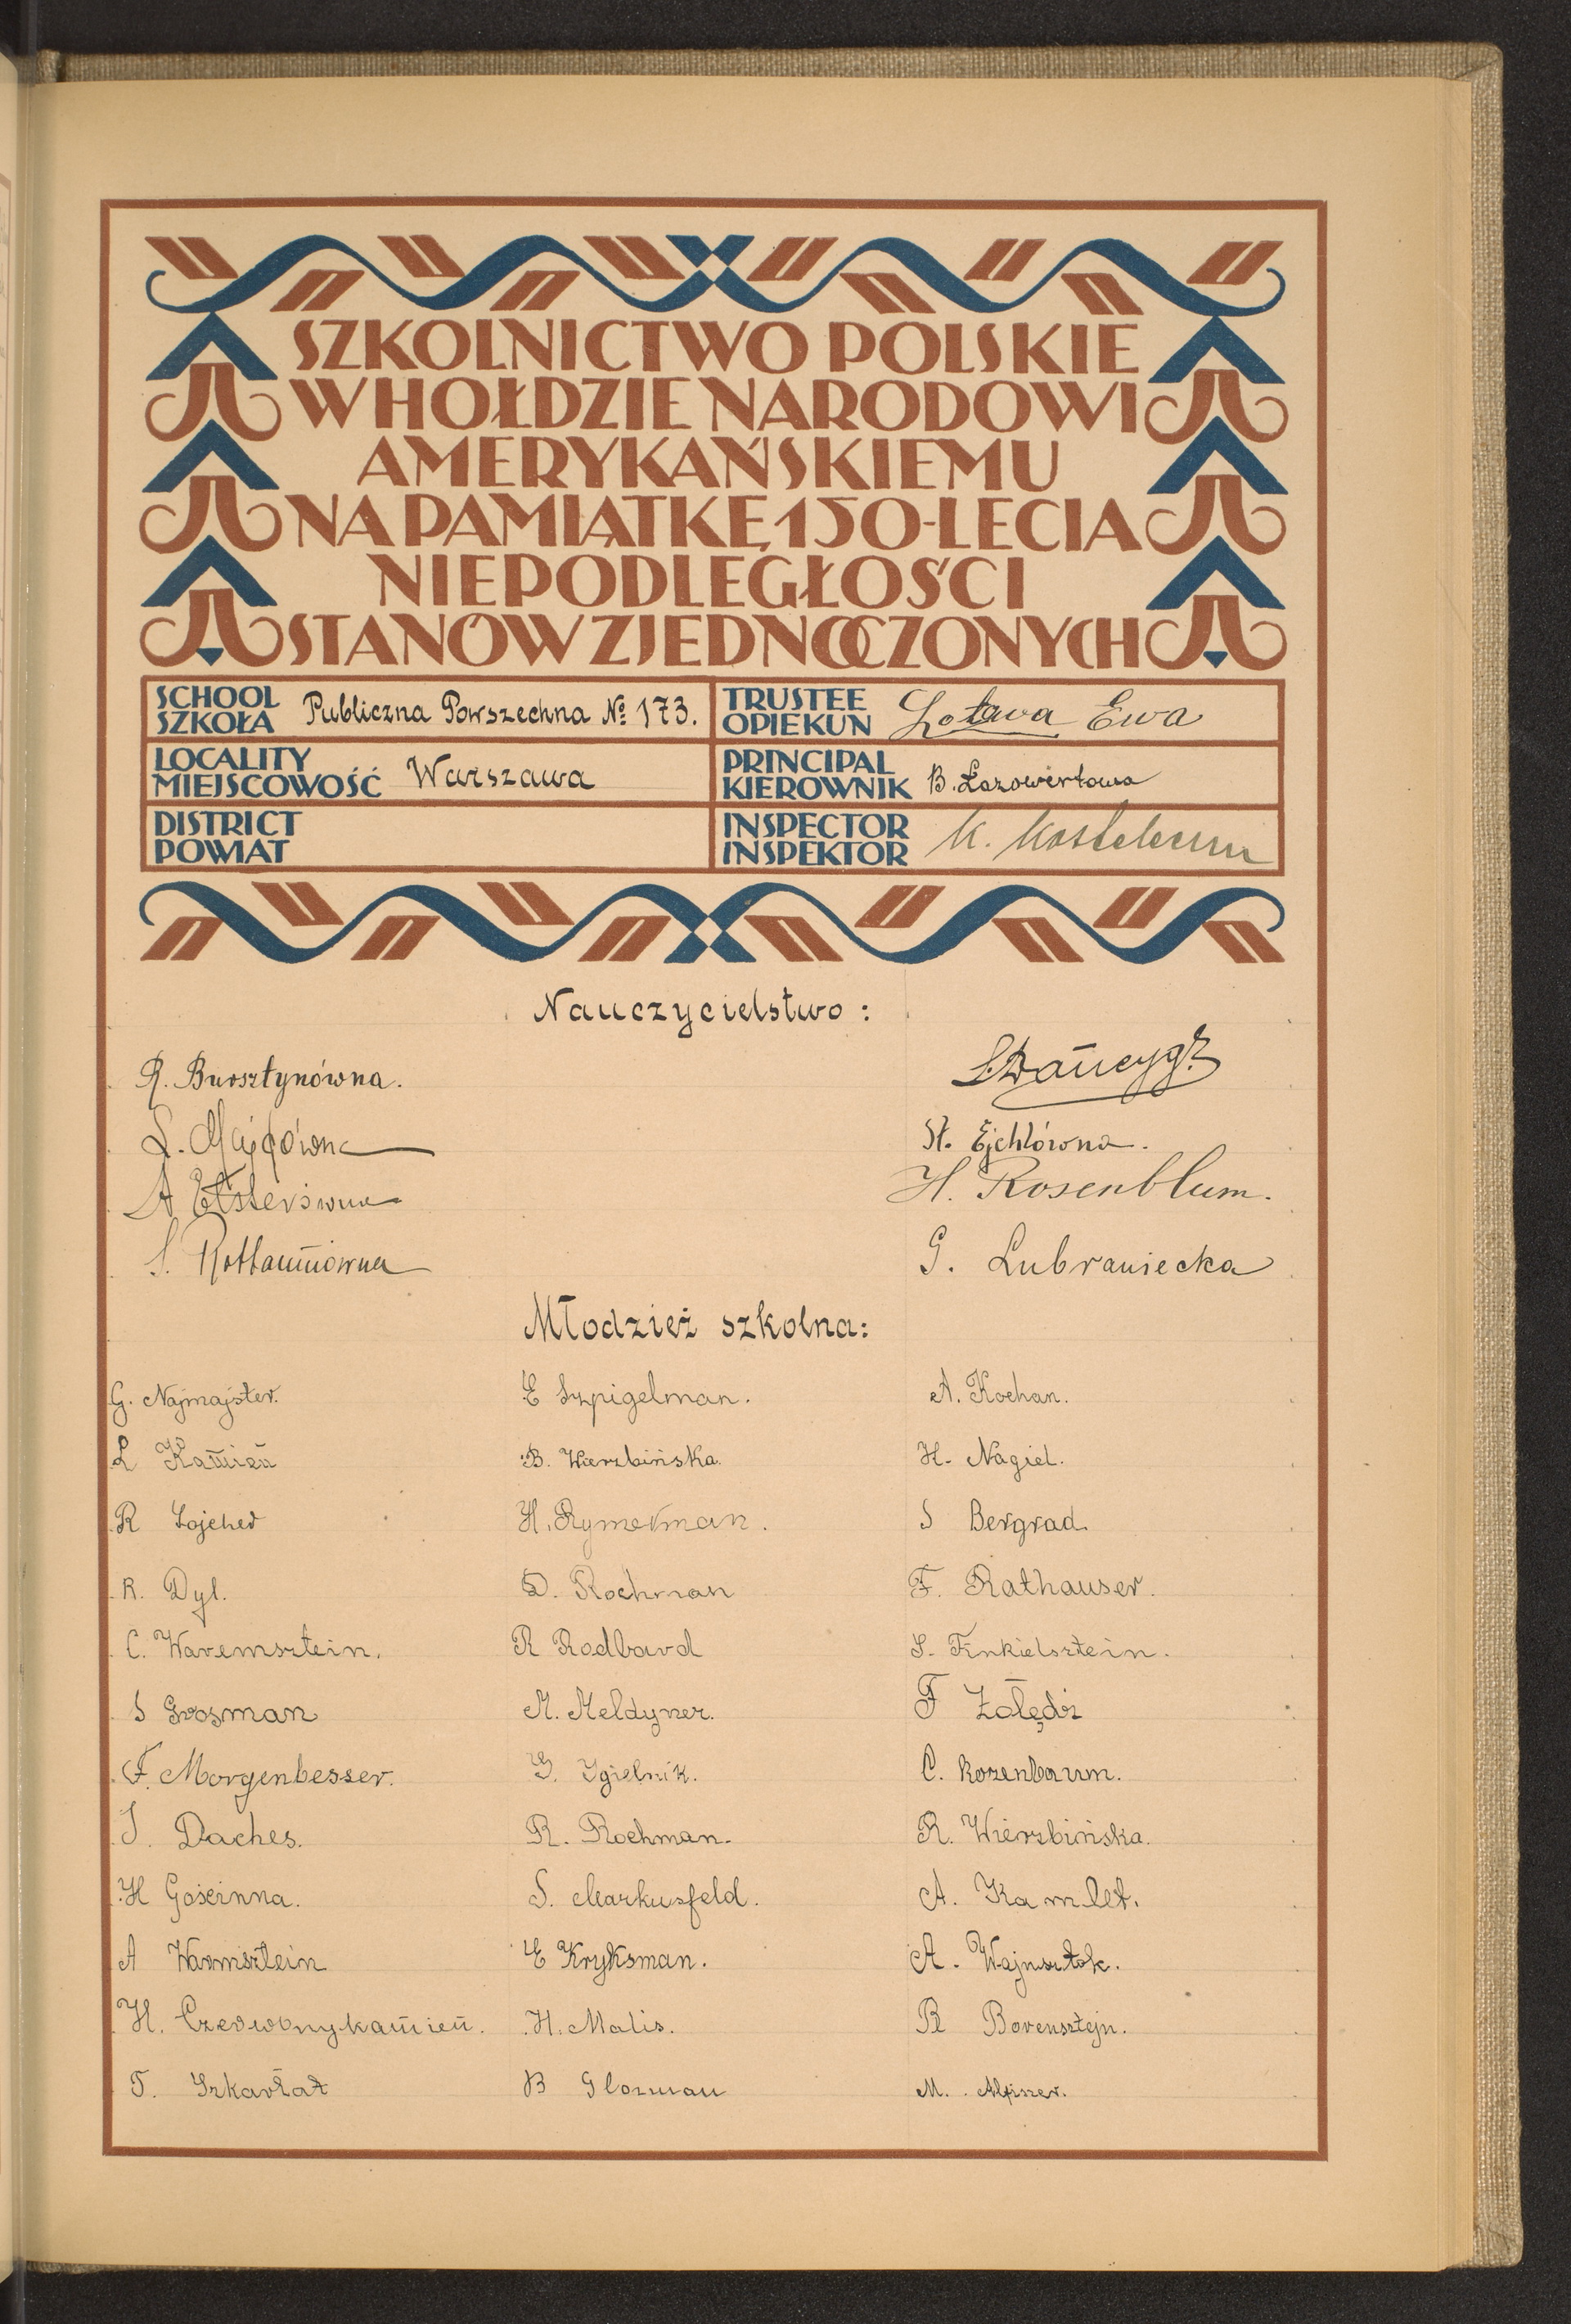 SZKOLNICTWO POLSKIE
W HOŁDZIE NARODOWI
AMERYKAŃSKIEMU
NA PAMIĄTKĘ 150-LECIA
NIEPODLEGŁOŚCI
STANÓW ZJEDNOCZONYCH
SCHOOL SZKOŁA Publiczna Powszechna № 173.
TRUSTEE OPIEKUN Ewa
LOCALITY MIEJSCOWOŚĆ Warszawa
PRINCIPAL KIEROWNIK B. Łazowertowa
DISTRICT POWIAT
INSPECTOR INSPEKTOR K.
Nauczycielstwo:
R. Bursztynówna. S. Dancygr
L. Majdówna St. Ejchlówna.
A Elsterówna H. Rosenblum.
S. Rottamówna G. Lubraniecka
Młodzież szkolna:
G. Najmajster. E Szpigelman. A. Kochan.
L Kamień B. Wierzbińska. H. Nagiel.
R Lojcher H. Rymerman. S Bergrad.
R. Dyl. D. Rochman F. Rathauser.
C. Waremsztein. R Rodbard S. Finkielsztein.
S Grosman M. Meldyner. F Żołędź
F. Morgenbesser. G. Igielnik. C. Rozenbaum.
J. Daches. R. Rochman. R. Wierzbińska.
H Gościnna. S. Markusfeld. A. Kamlet.
A Warmsztein E Kryksman. A. Wajnsztok.
H. Czerwonykamień. H. Malis. R Borensztejn.
T. Szkarłat B Glozman M. Alfiszer.